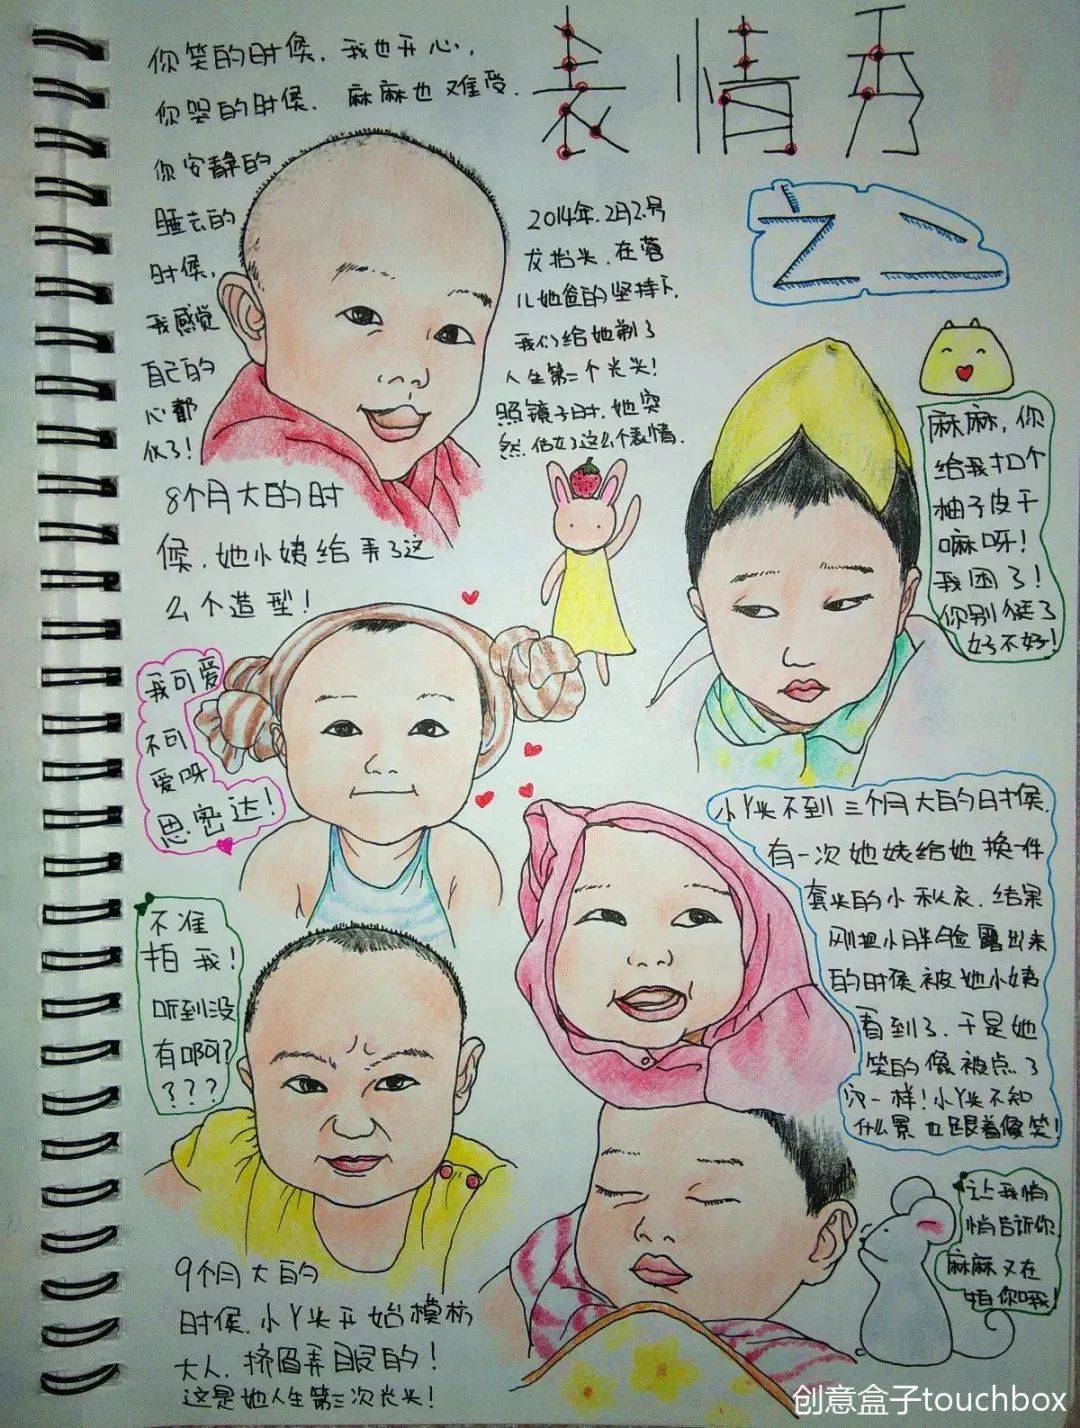 表情秀
之二
你笑的时候，我也开心，
你哭的时候，麻麻也难受。
你安静的
睡去的
时候，
我感觉
自己的
心都
化了！
2014年，2月2号
龙抬头，在蓉
儿她爸的坚持下，
我们给她剃了
人生第二个光头！
照镜子时，她突
然，估了这么个表情。
8个月大的时
候，她小姨给弄了这
么个造型！
麻麻，你
给我扣个
柚子皮干
嘛呀！
我困了！
你别逗了
好不好！
我可爱
不可
爱呀
思密达！
小丫头不到三个月大的时候，
有一次她姨给她换件
套头的小秋衣，结果
刚把小胖脸露出来
的时候被她小姨
看到了，于是她
笑的像被点了
穴一样！小丫头不知
什么景也跟着傻笑！
不准
拍我！
听到没
有啊？
？？？
9个月大的
时候，小丫头开始模仿
大人，挤眉弄眼的！
这是她人生第三次光头！
让我悄
悄告诉你
麻麻又在
拍你哦！
创意盒子touchbox